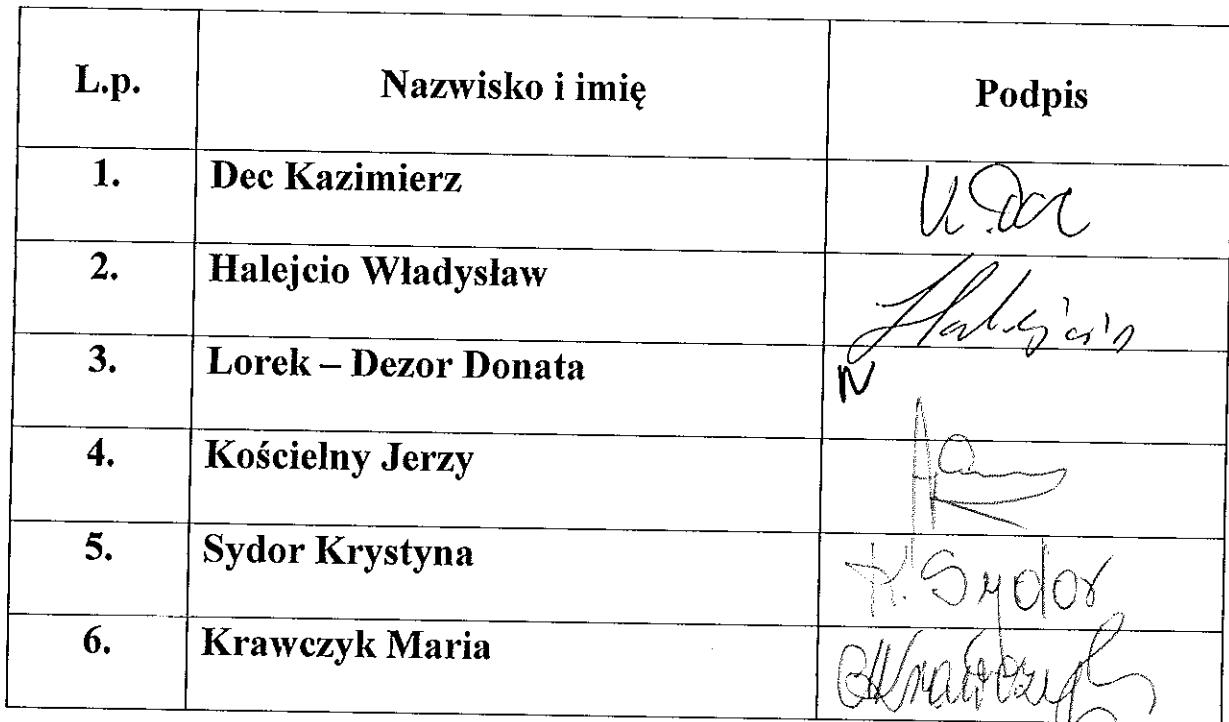 L.p. Nazwisko i imię Podpis
1. Dec Kazimierz K. Dec
2. Halejcio Władysław Halejcio
3. Lorek – Dezor Donata N
4. Kościelny Jerzy
5. Sydor Krystyna K. Sydor
6. Krawczyk Maria Krawczyk